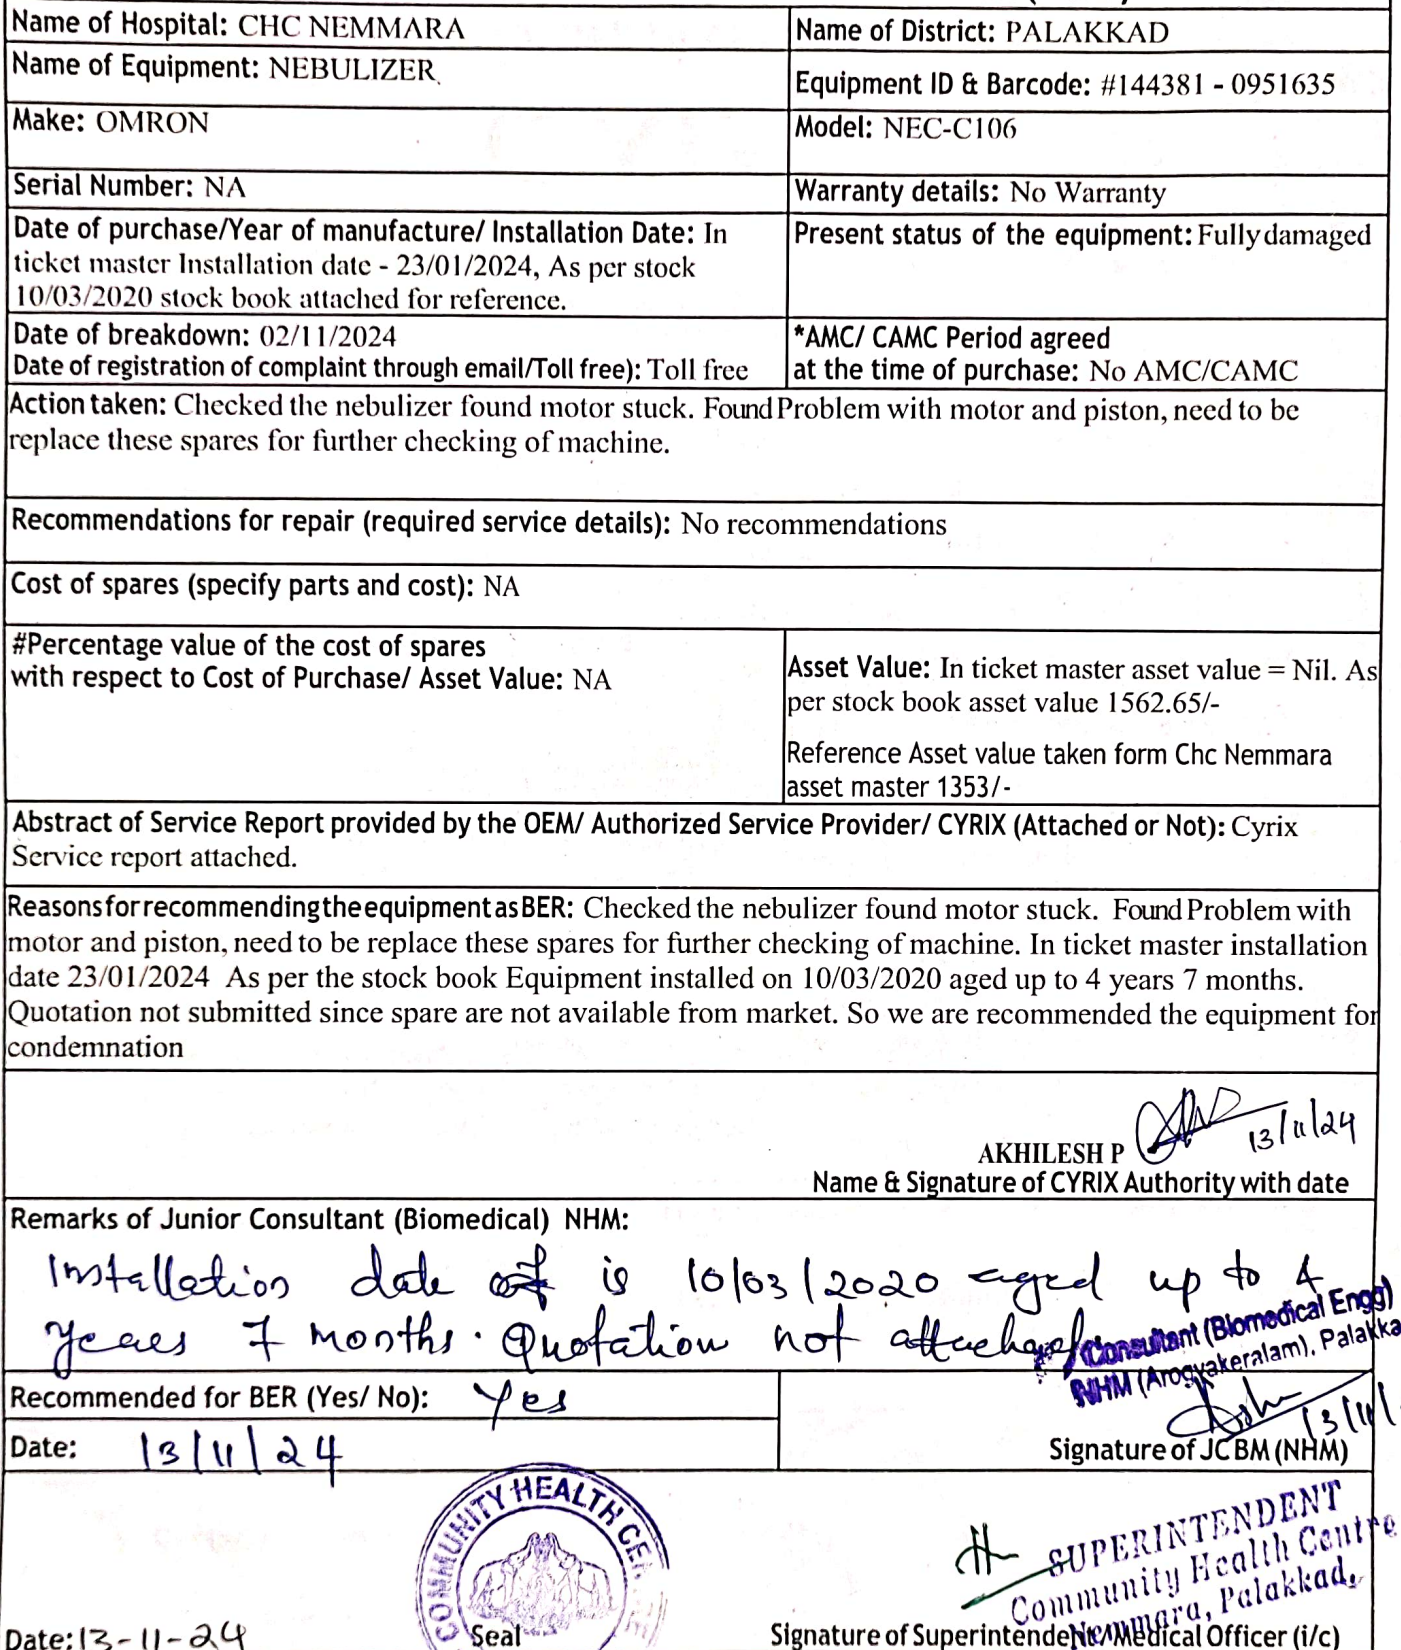 Name of Hospital: CHC NEMMARA
Name of District: PALAKKAD
Name of Equipment: NEBULIZER
Equipment ID & Barcode: #144381 - 0951635
Make: OMRON
Model: NEC-C106
Serial Number: NA
Warranty details: No Warranty
Date of purchase/Year of manufacture/ Installation Date: In
ticket master Installation date - 23/01/2024, As per stock
10/03/2020 stock book attached for reference.
Present status of the equipment: Fully damaged
Date of breakdown: 02/11/2024
Date of registration of complaint through email/Toll free): Toll free
*AMC/ CAMC Period agreed
at the time of purchase: No AMC/CAMC
Action taken: Checked the nebulizer found motor stuck. Found Problem with motor and piston, need to be
replace these spares for further checking of machine.
Recommendations for repair (required service details): No recommendations
Cost of spares (specify parts and cost): NA
#Percentage value of the cost of spares
with respect to Cost of Purchase/ Asset Value: NA
Asset Value: In ticket master asset value = Nil. As
per stock book asset value 1562.65/-
Reference Asset value taken form Chc Nemmara
asset master 1353/-
Abstract of Service Report provided by the OEM/ Authorized Service Provider/ CYRIX (Attached or Not): Cyrix
Service report attached.
Reasons for recommending the equipment as BER: Checked the nebulizer found motor stuck. Found Problem with
motor and piston, need to be replace these spares for further checking of machine. In ticket master installation
date 23/01/2024 As per the stock book Equipment installed on 10/03/2020 aged up to 4 years 7 months.
Quotation not submitted since spare are not available from market. So we are recommended the equipment for
condemnation
13/11/24
AKHILESH P
Name & Signature of CYRIX Authority with date
Remarks of Junior Consultant (Biomedical) NHM:
Installation date is 10/03/2020 aged up to 4
years 7 months. Quotation not attached
Consultant (Biomedical Engg)
NHM (Arogyakeralam), Palakka
Recommended for BER (Yes/ No): Yes
13/11/
Date: 13/11/24
Signature of JCBM (NHM)
COMMUNITY HEALTH CENTRE
SUPERINTENDENT
Community Health Centre
Nemmara, Palakkad.
Date: 13-11-24
Seal
Signature of Superintendent/Medical Officer (i/c)